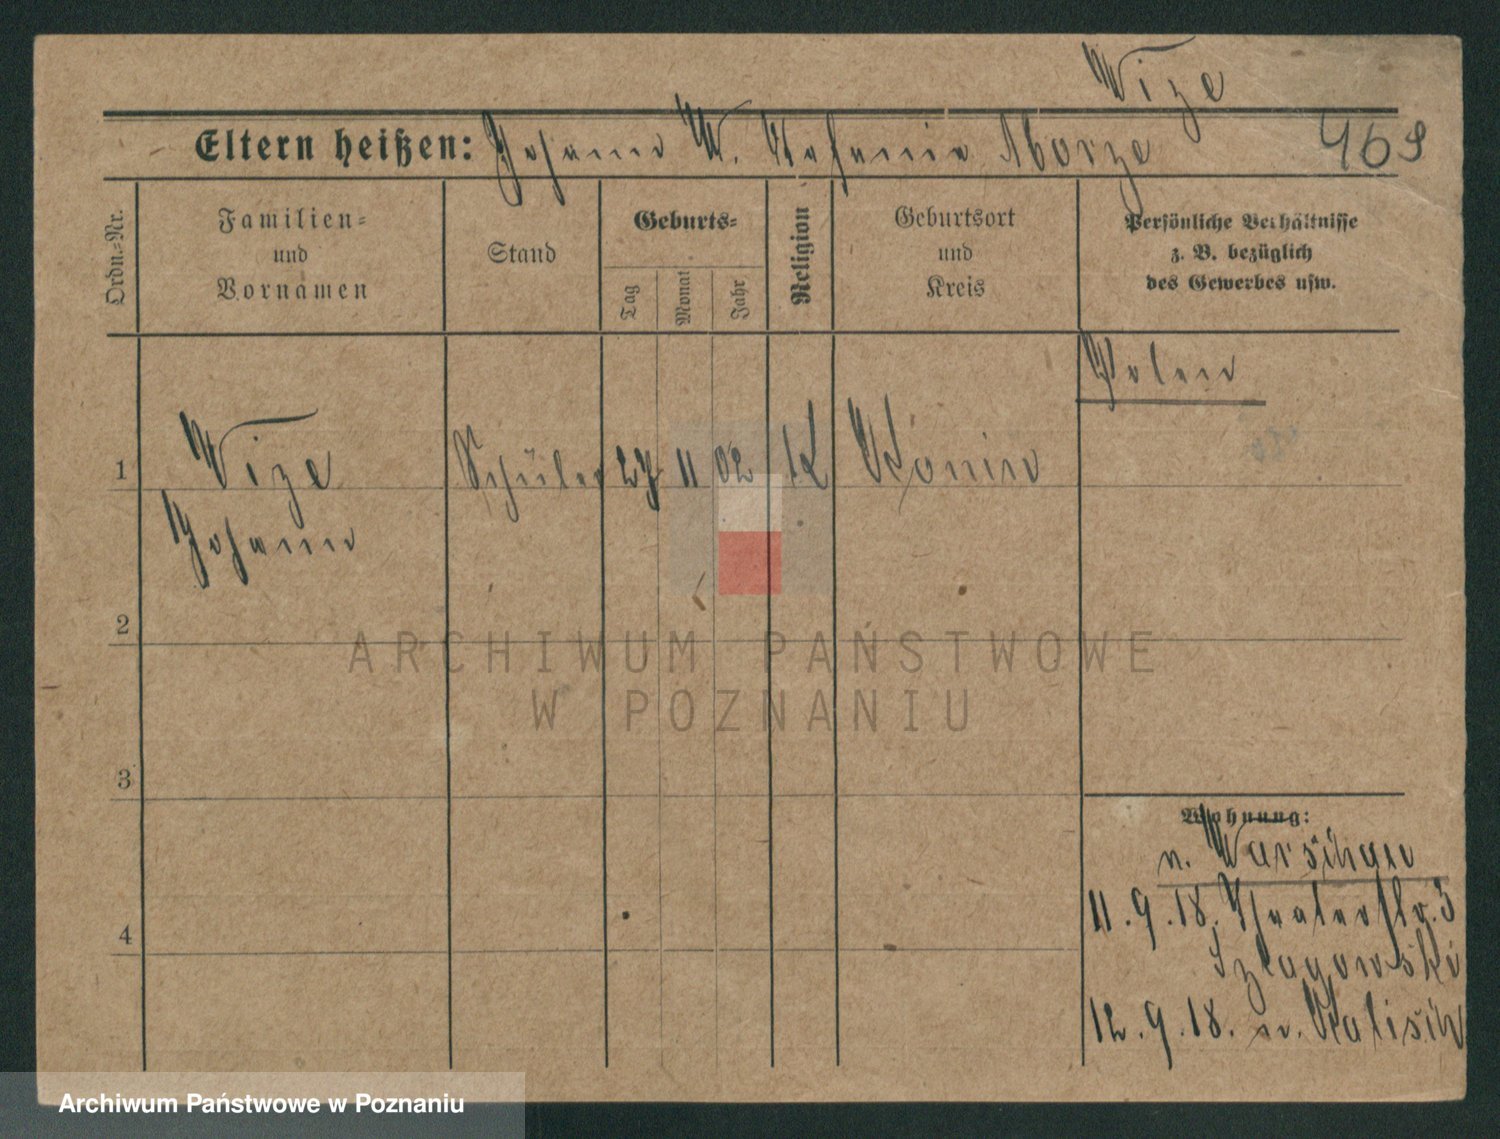 Wize
Eltern heißen: Johann W. Stefania Morze
469
Ordn.-Nr.
Familien-
und
Vornamen
Stand
Geburts-
Tag
Monat
Jahr
Religion
Geburtsort
und
Kreis
Persönliche Verhältnisse
z. B. bezüglich
des Gewerbes usw.
Polen
1 Wize Schüler 27 11 02 K Konin
Johann
2
ARCHIWUM PAŃSTWOWE
W POZNANIU
3
Wohnung:
n. Warschau
11.9.18. Theaterstr. 3
4
Szlagowski
12.9.18. n. Kalisch
Archiwum Państwowe w Poznaniu